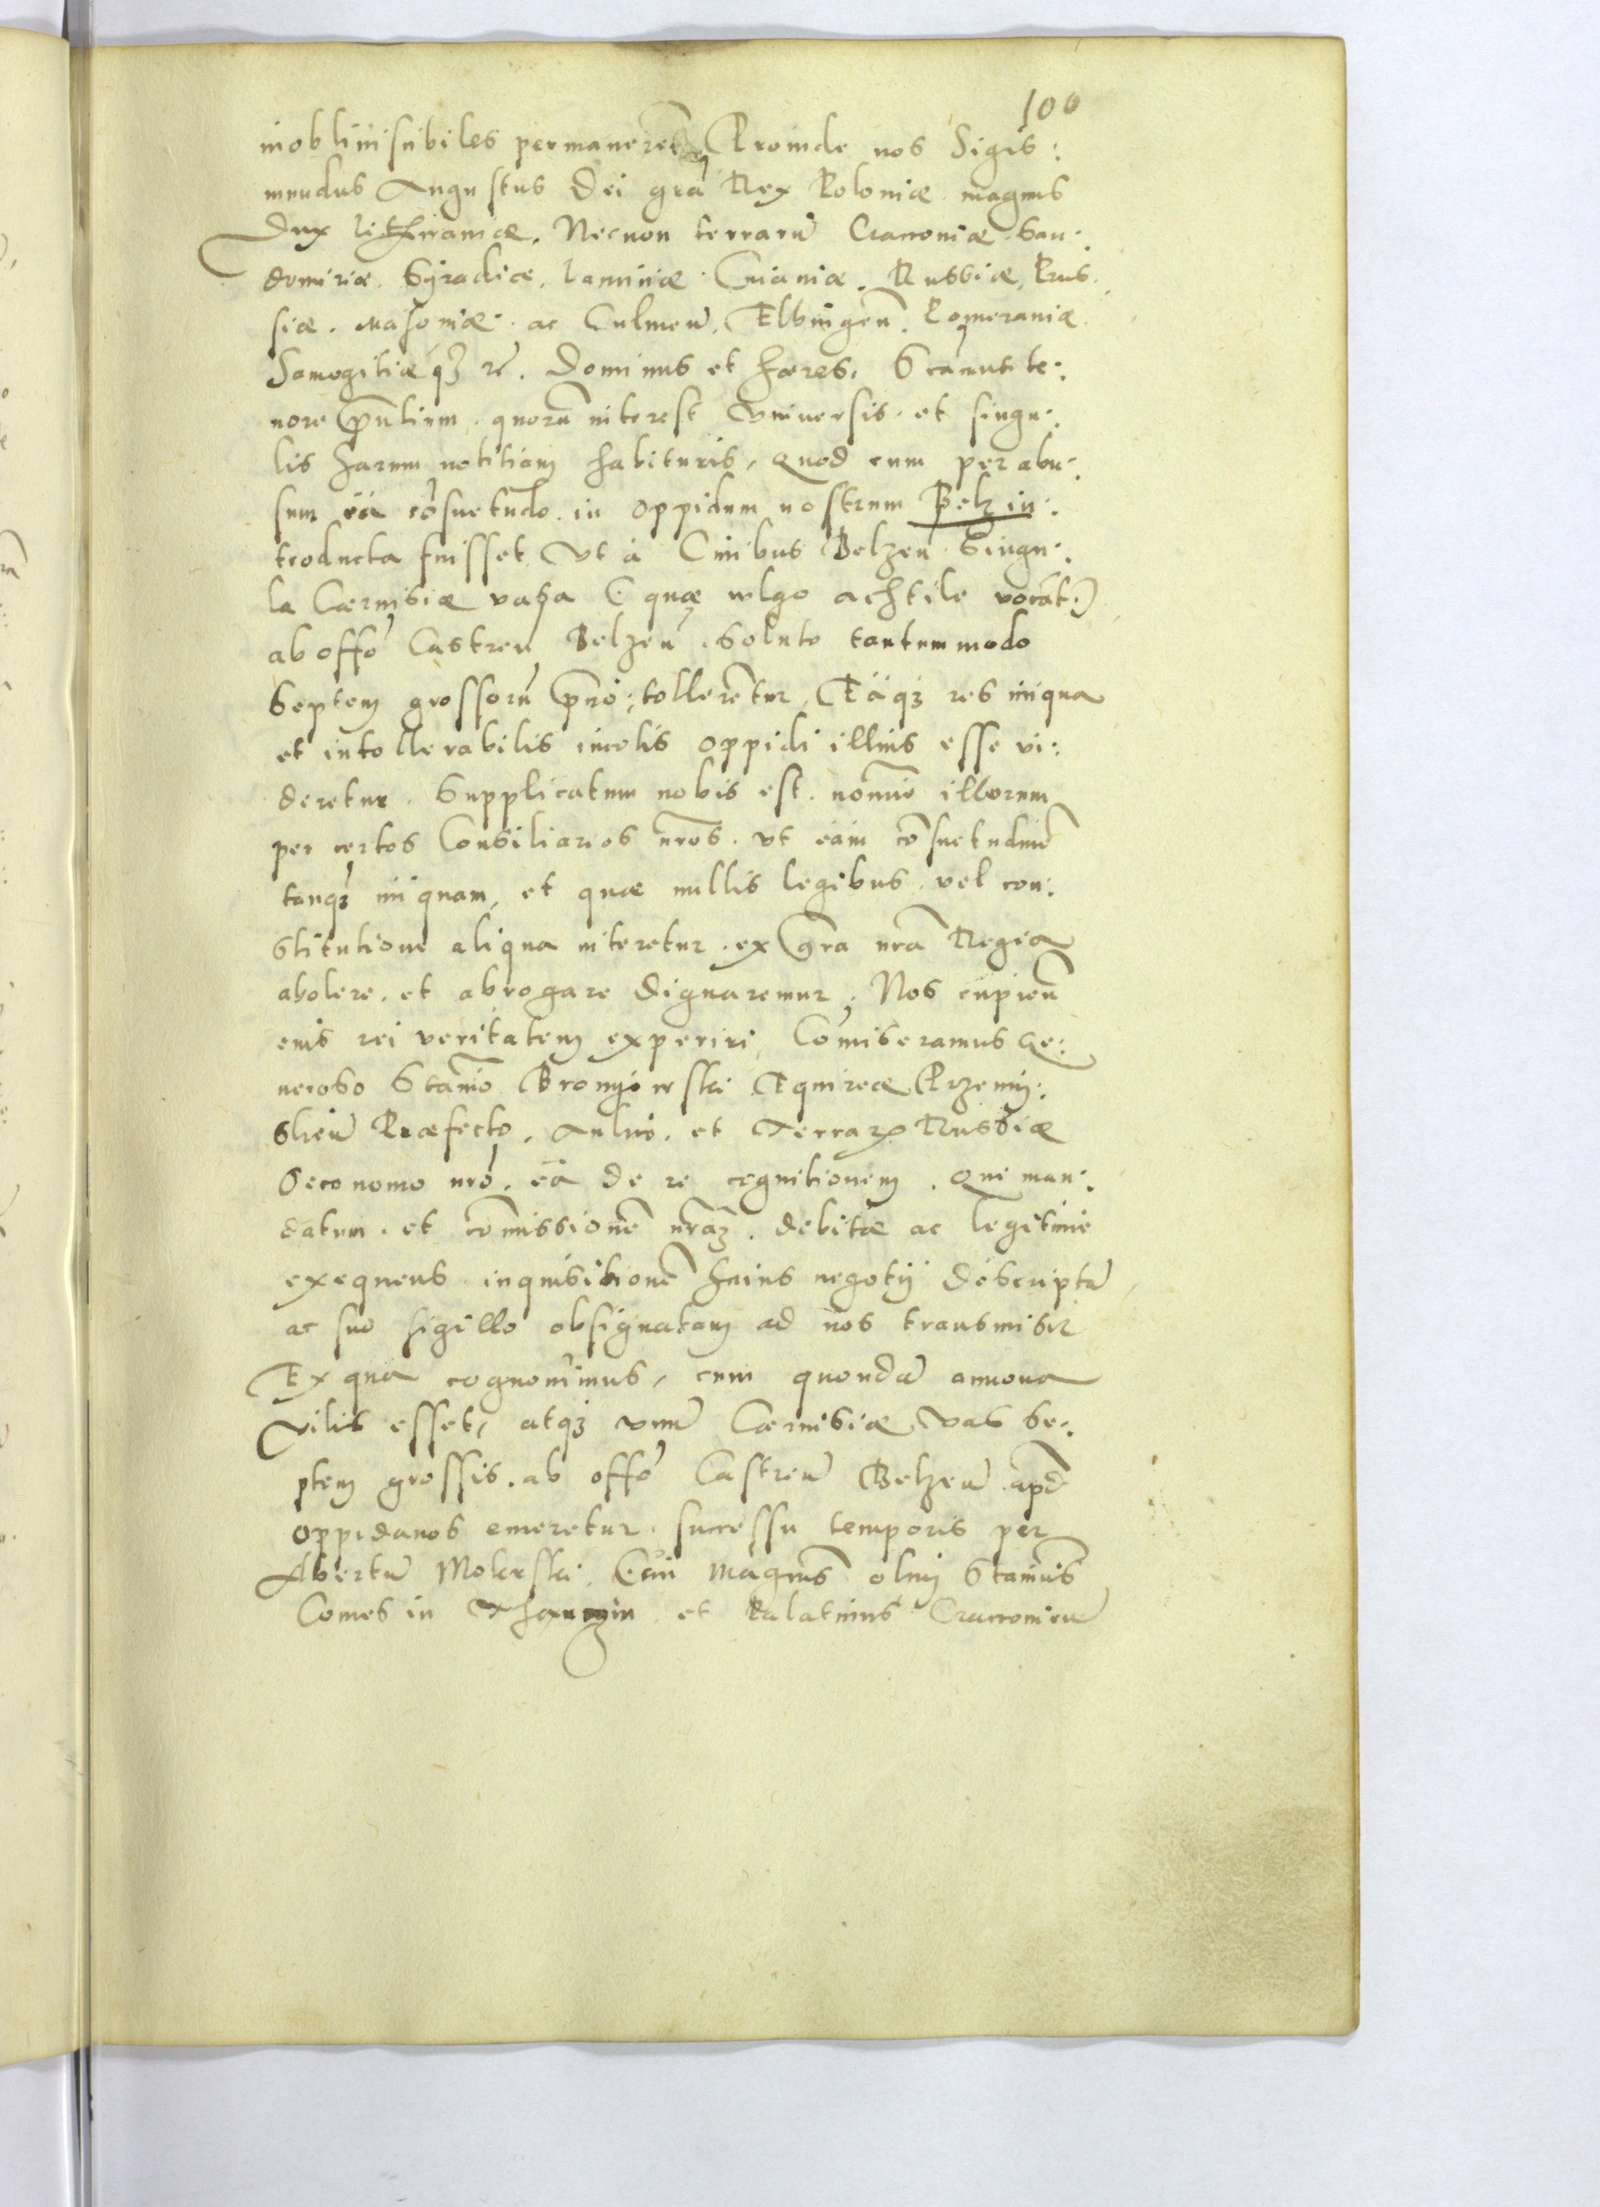 100
inobliuiscibiles permanerēt Proinde nos Sigis:
mundus Augustus Dei grā Rex Poloniæ magnus
Dux Lithuaniæ. Necnon terrarū Cracouiæ. San:
domiriæ. Syradiæ. Lanciciæ. Cuiauiæ. Russiæ, Prus:
siæ. Masouiæ. ac Culmeñ. Elbingeñ. Pomeraniæ
Samogitiæq3 rē. Dominus et hæres,
nore pñtium. quorū interest Vniuersis. et singu:
lis harum notitiam habituris, Quod cum per abu:
sum ea cōsuetudo. in oppidum nostrum Belz in:
troducta fuisset Vt à Ciuibus Belzeñ Singu:
la Cæruisiæ vasa (quæ vulgo achtile vocāt)
ab offō Castreñ Belzeñ. Soluto tantummodo
Septem grossorū p̄cio, tollerētur, Eaq3 res iniqua
et intollerabilis incolis oppidi illius esse vi:
deretur. Supplicatum nobis est. nomīe illorum
per certos Consiliarios nr̄os. vt eam cōsuetudinē
tanq3 iniquam, et quæ nullis legibus. vel con:
stitutione aliqua niteretur. ex gr̄a nr̄a Regia
abolere. et abrogare dignaremur. Nos cupieñ
eius rei veritatem experiri, Cōmiseramus Ge:
neroso Stānio Broniowski Equireæ Przemi:
slieñ Præfecto. Aulico. et Terrarū Russiæ
Oeconomo nrō. eā de re cognitionem. Qui man:
datum. et cōmissionē nr̄am. debitæ ac legitime
exequens. inquisitionē huius negotij descriptā
ac suo sigillo obsignatam ad nos transmisit
Ex qua cognouimus, cum quondā annona
Vilis esset, atq3 vnum Cæruisiæ vas se:
ptem grossis. ab offō Castreñ Belzeñ. apd
oppidanos emeretur. successu temporis per
Albertū cui Magcūs olim Stānius
Comes in Tharnow et Palatinus Cracouieñ